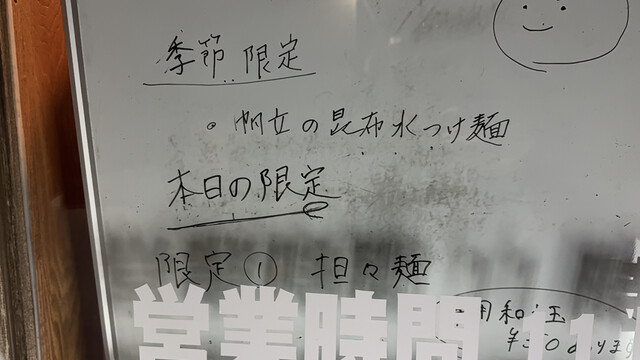 季節限定
。帆立の昆布水つけ麺
本日の限定
限定① 担々麺
用和え玉
営業時間 11